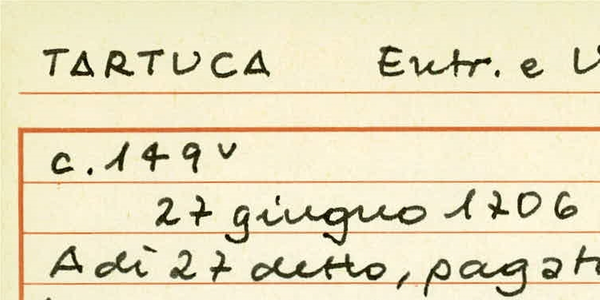 TARTUCA Entr. e
c. 149v
27 giugno 1706
A di 27 detto, pagat